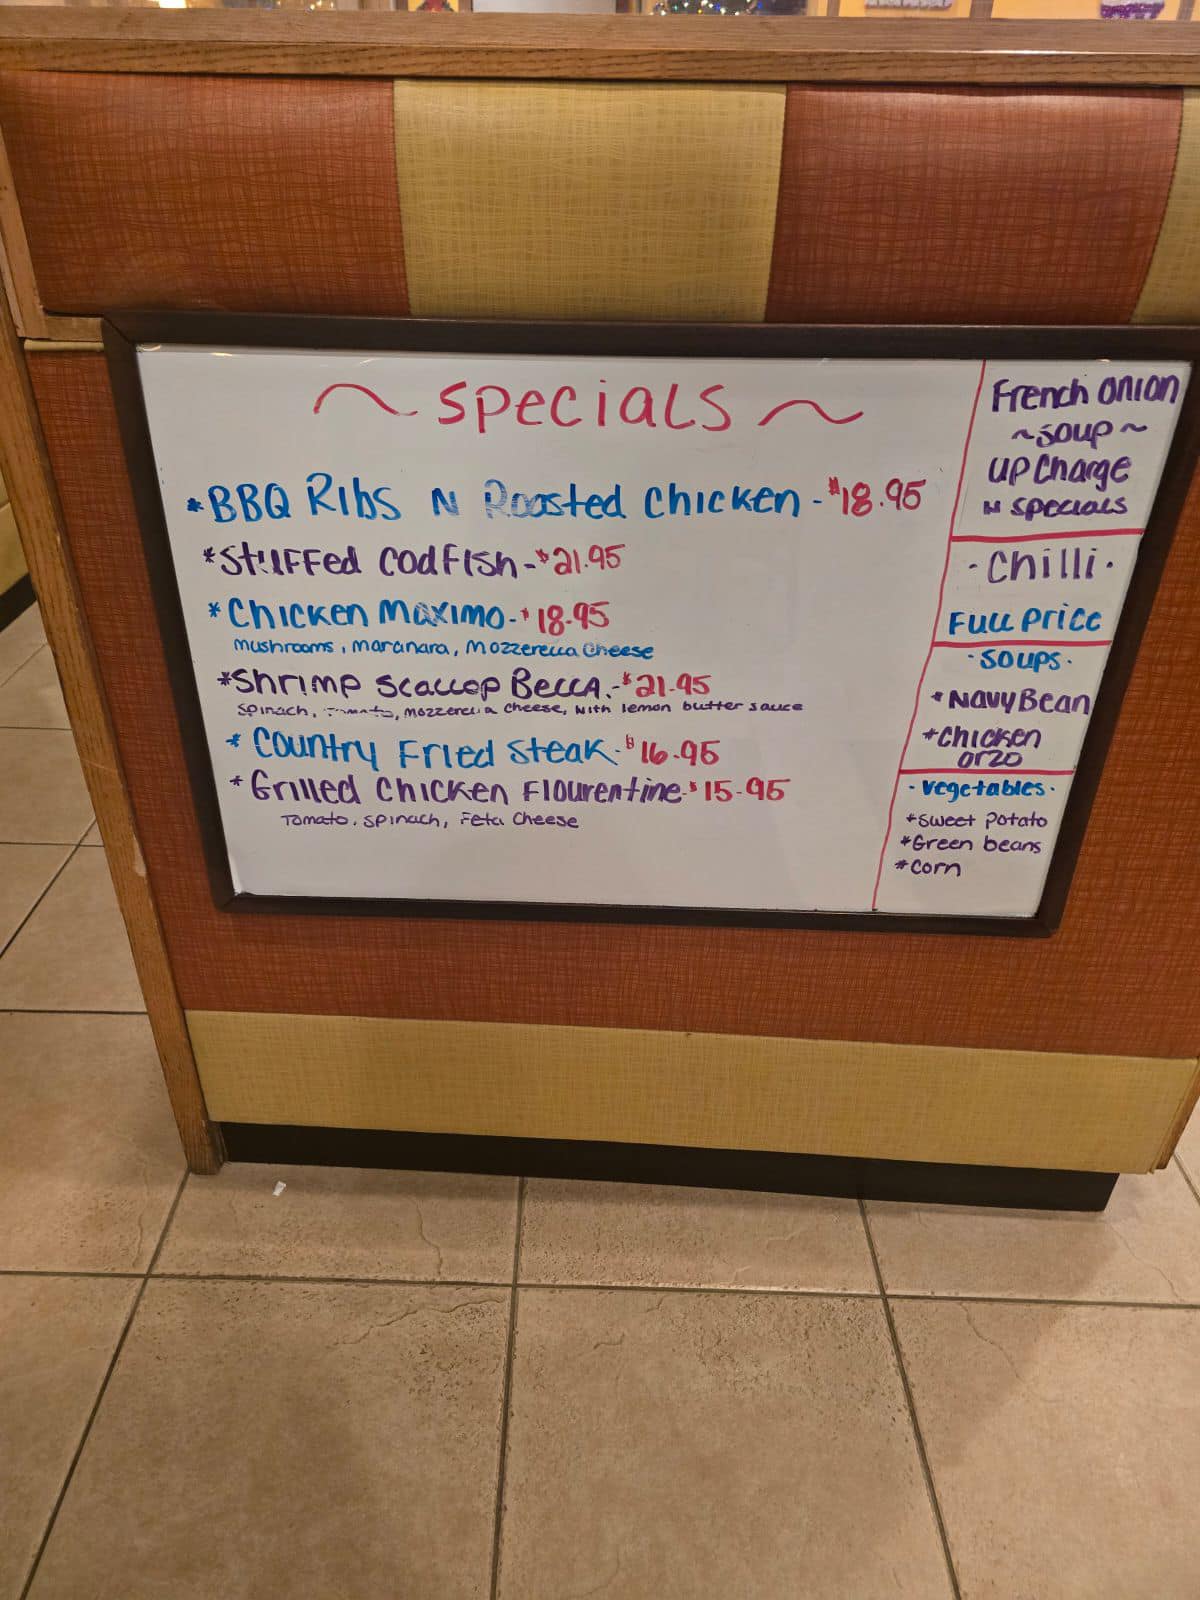 ~ Specials ~
*BBQ Ribs N Roasted Chicken - $18.95
*Stuffed Codfish - $21.95
*Chicken Maximo - $18.95
Mushrooms, Maranara, Mozzerella Cheese
*Shrimp Scallop Becca. - $21.95
Spinach, Tomato, Mozzerella Cheese, with lemon butter sauce
*Country Fried Steak - $16.95
*Grilled Chicken Flourentine - $15.95
Tomato, Spinach, Feta Cheese
French Onion
~Soup~
Up Charge
N Specials
·Chilli·
Full Price
·Soups·
*Navy Bean
*Chicken
Orzo
·Vegetables·
*Sweet Potato
*Green beans
*Corn